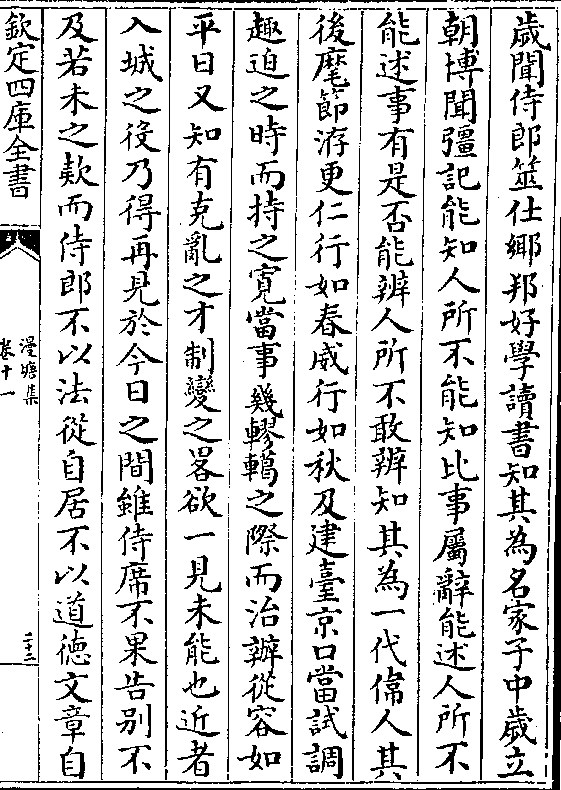 歲聞侍郎筮仕鄉邦好學讀書知其為名家子中歲立
朝博聞彊記能知人所不能知比事屬辭能述人所不
能述事有是否能辨人所不敢辨知其為一代偉人其
後麾節洊更仁行如春威行如秋及建臺京口當試調
趣迫之時而持之寛當事幾轇轕之際而治辦從容如
平日又知有克亂之才制變之畧欲一見未能也近者
入城之役乃得再見於今日之間雖侍席不果告别不
及若未之欵而侍郎不以法從自居不以道德文章自
欽定四庫全書
漫塘集
卷十一
二十二